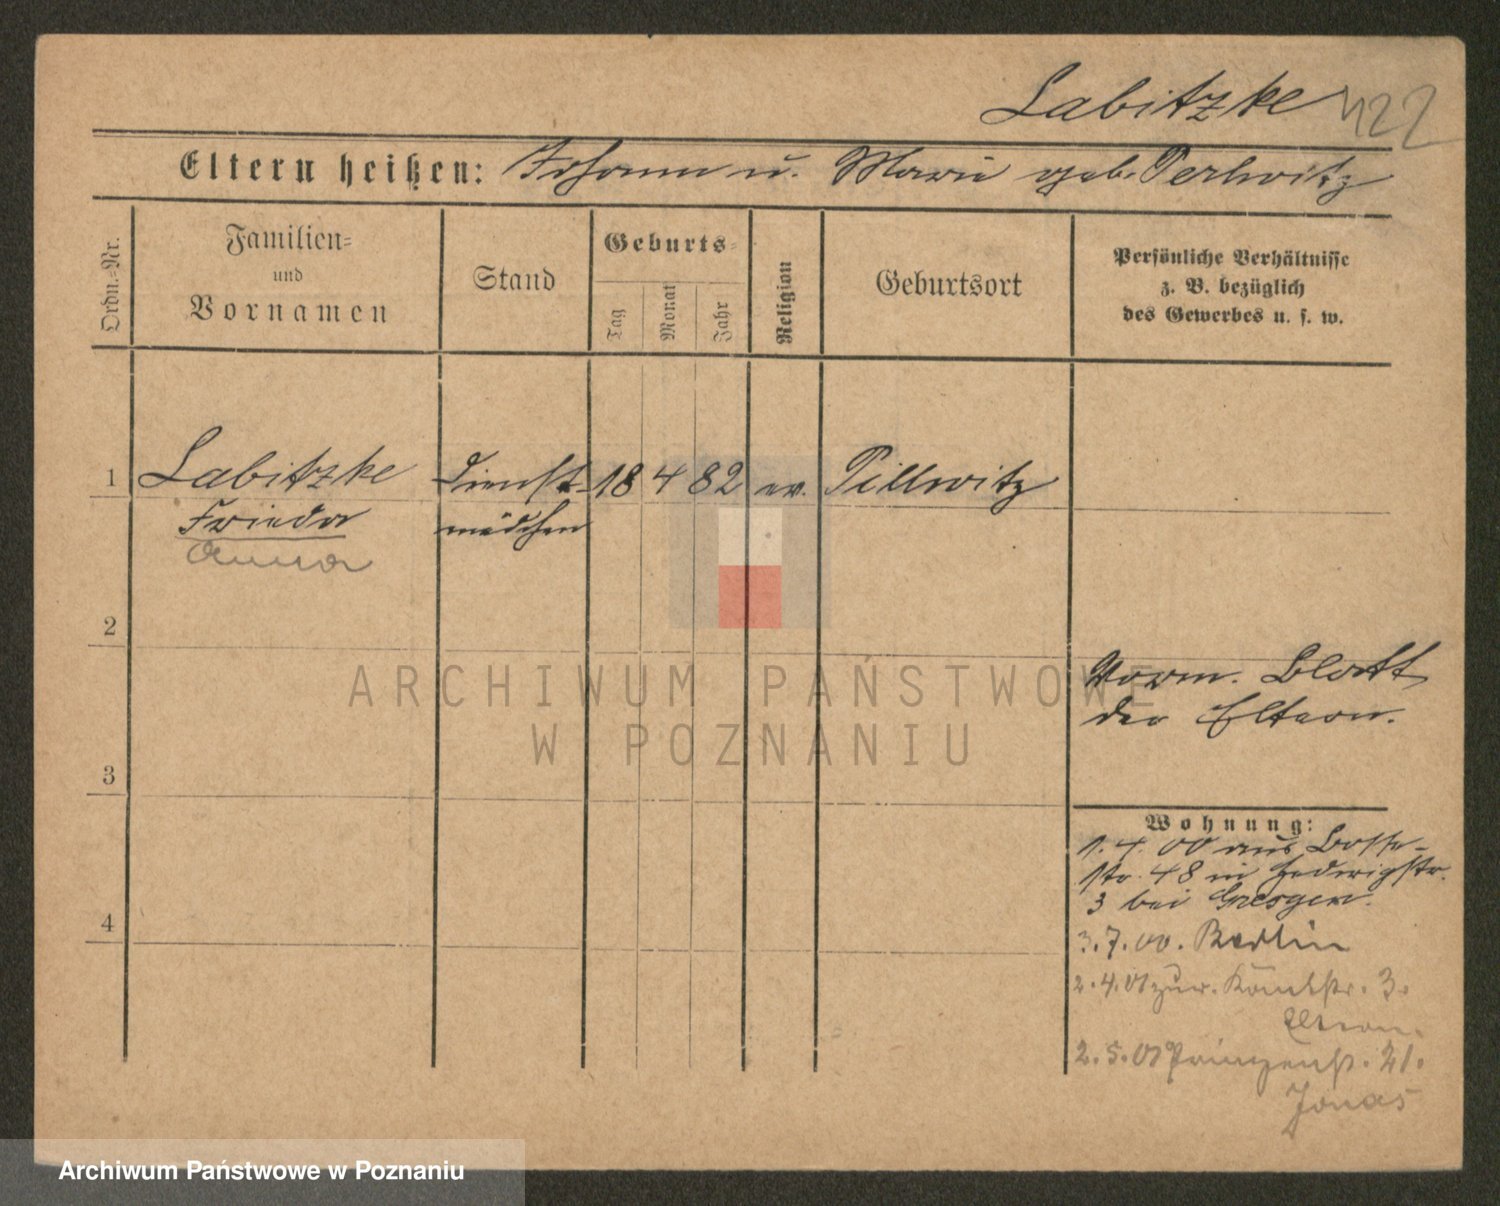 Labitzke 422
Eltern heißen: Johann u. Marie geb. Perlwitz
Ordn.-Nr.
Familien-
und
Vornamen
Stand
Geburts-
Tag
Monat
Jahr
Religion
Geburtsort
Persönliche Verhältnisse
z. B. bezüglich
des Gewerbes u. s. w.
1 Labitzke Dienst- 18 4 82 ev. Pillwitz
Frieda mädchen
Anna
2
Vorm. Blatt
der Eltern.
3
Wohnung:
1.4.00 aus
str. 48 in Hedwigstr.
3 bei
4
3.7.00. Berlin
2.4.01 zur. 3.
Eltern.
2.5.01 Prinzenstr. 21.
Jonas
ARCHIWUM PAŃSTWOWE
W POZNANIU
Archiwum Państwowe w Poznaniu